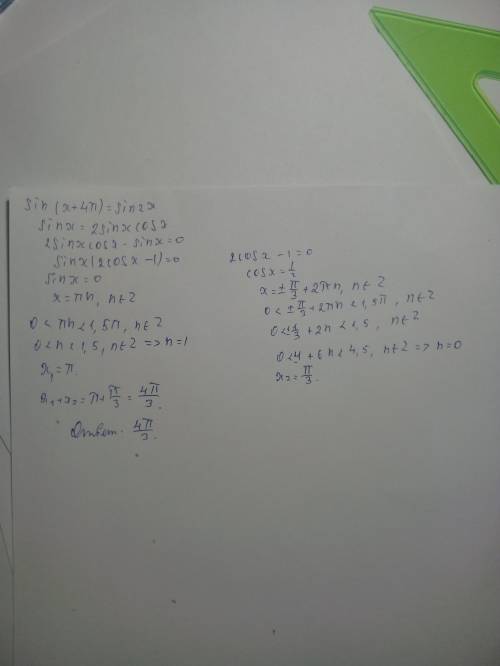 sin (x+4π) = sin2x
sinx = 2sinx cosx
2sinx cosx - sinx = 0
sinx(2cosx - 1) = 0
sinx = 0
x = πn, n∈Z
0 < πn < 1,5π, n∈Z
0 < n < 1,5, n∈Z => n=1
x₁ = π.
x₁+x₂ = π+π/3 = 4π/3.
Ответ. 4π/3.
2cosx - 1 = 0
cosx = 1/2
x = ±π/3 + 2πn, n∈Z
0 < ±π/3 + 2πn < 1,5π, n∈Z
0 < ±1/3 + 2n < 1,5, n∈Z
+ 6n < 4,5, n∈Z => n=0
x₂ = π/3.